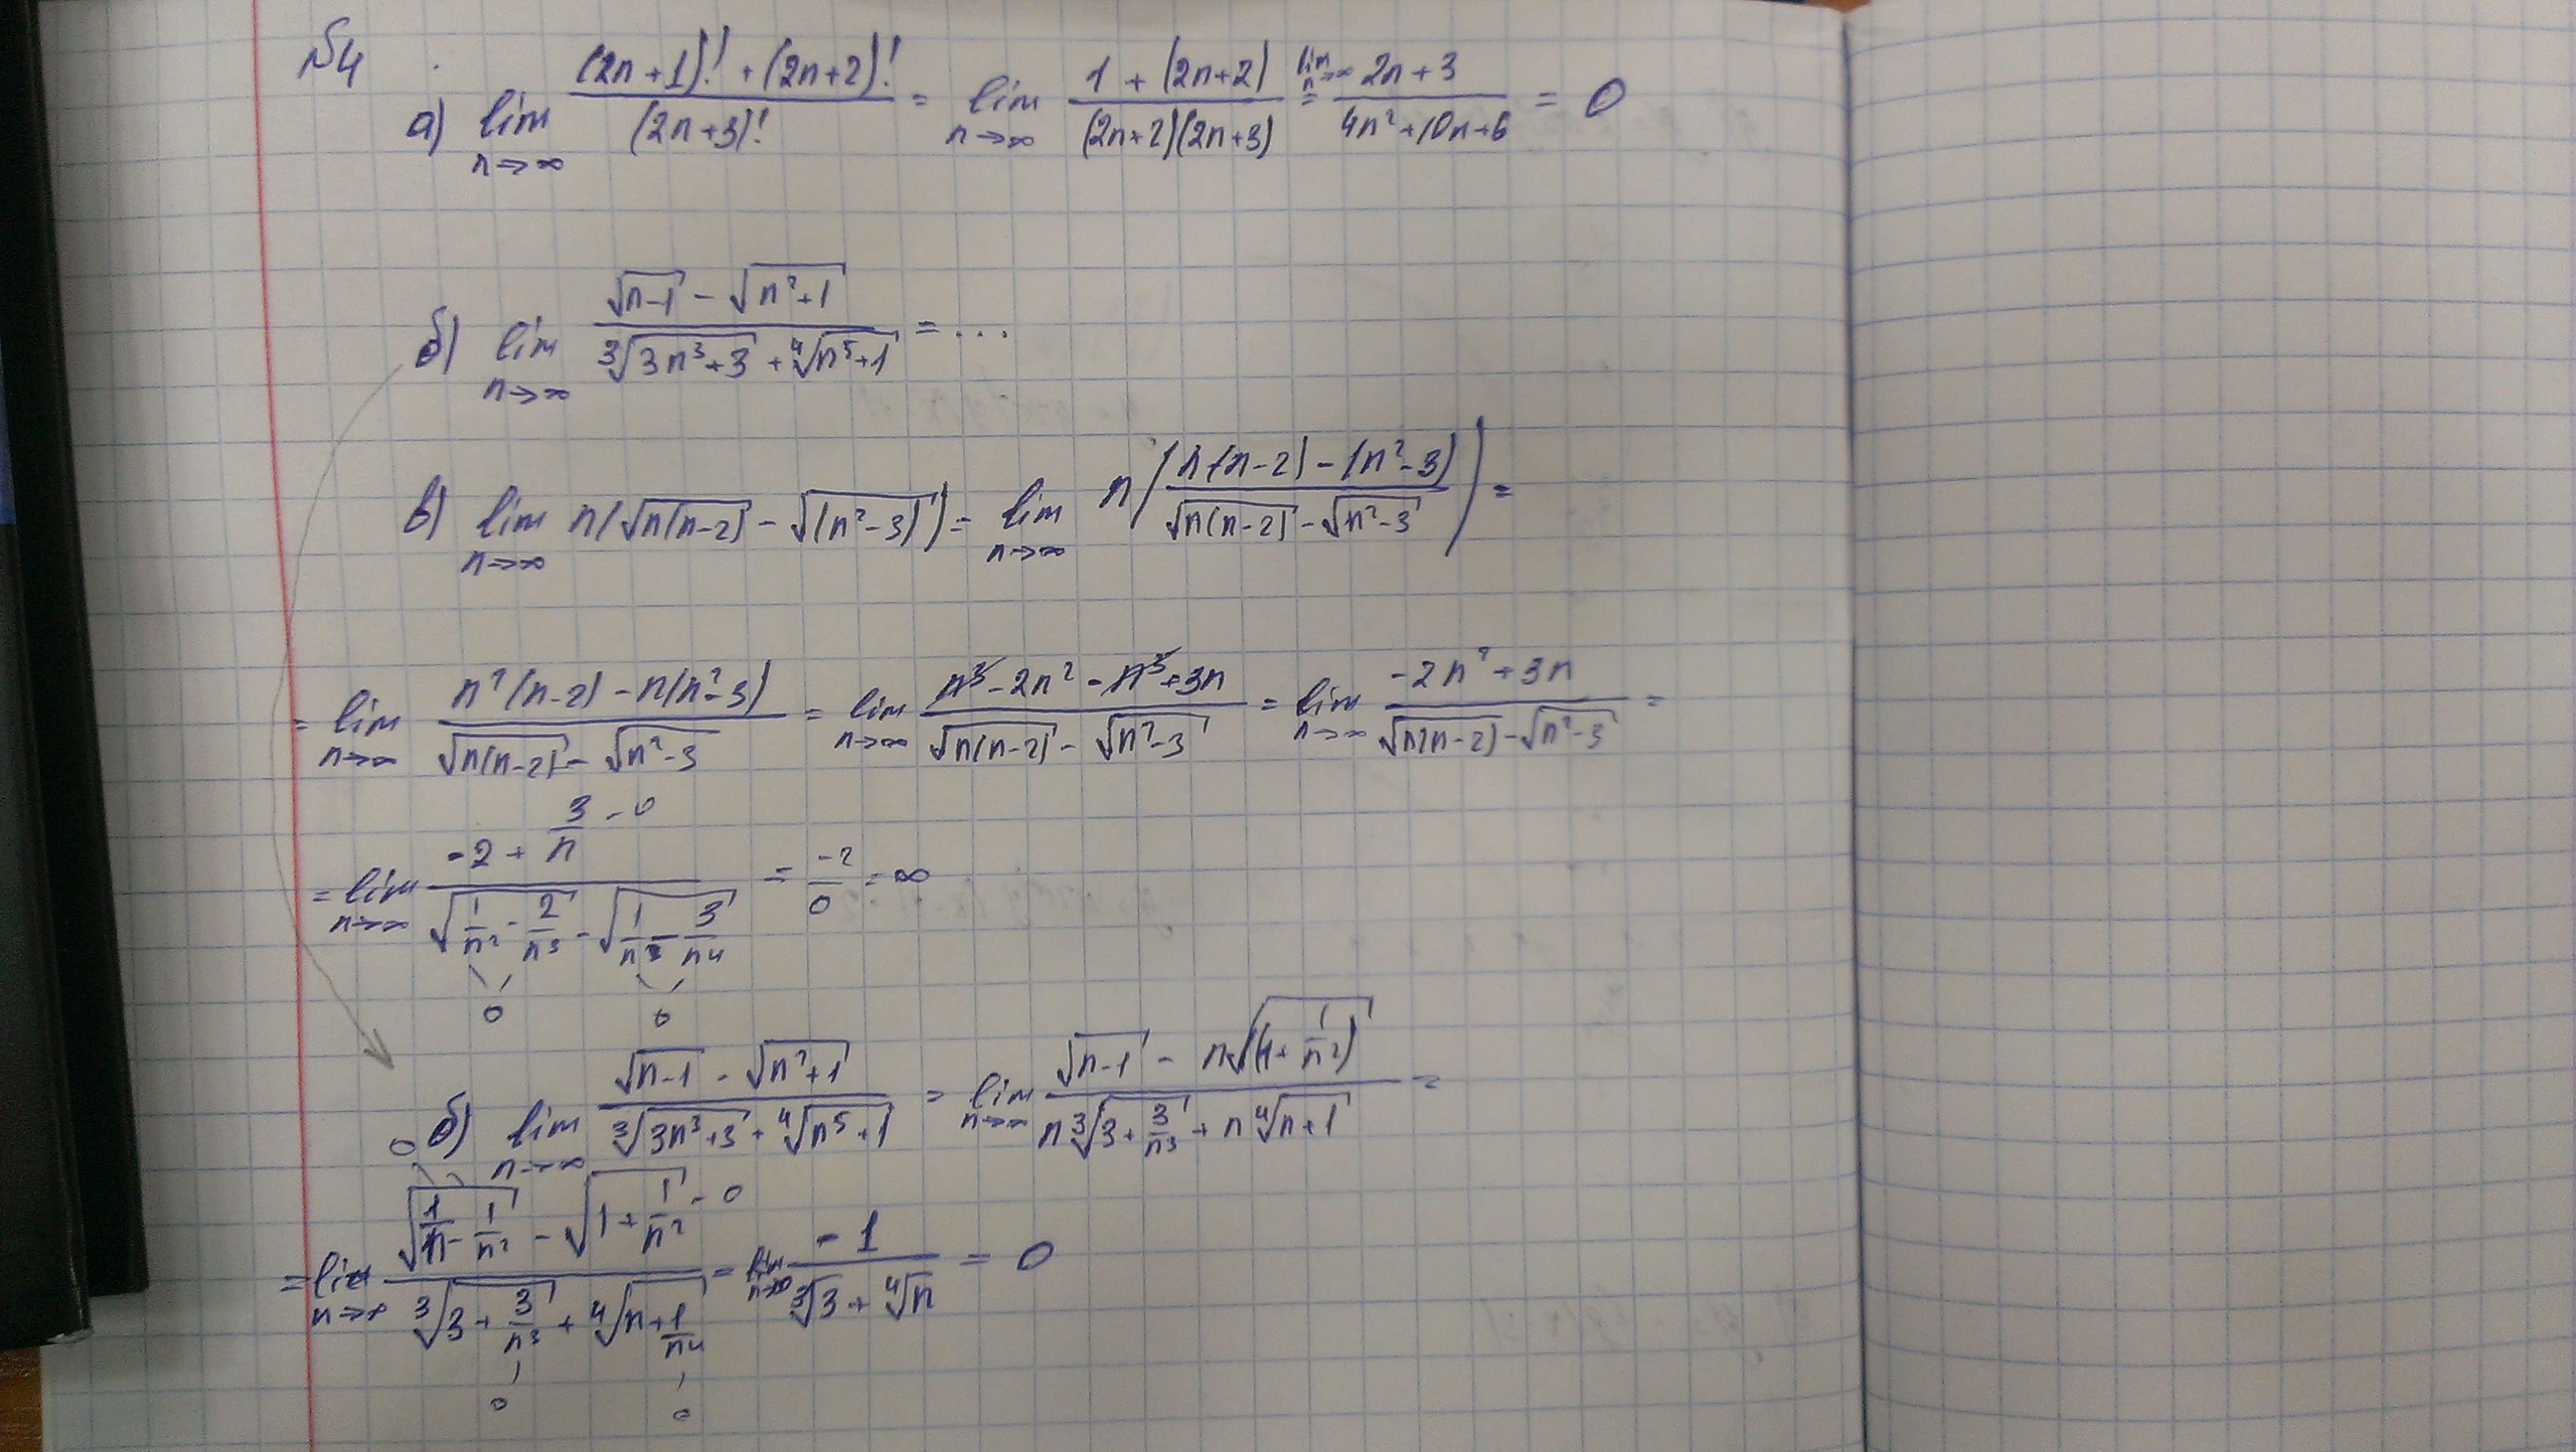 №4
а) lim n→∞ ((2n+1)! + (2n+2)!)/(2n+3)! = lim n→∞ (1 + (2n+2))/((2n+2)(2n+3)) = lim n→∞ (2n+3)/(4n²+10n+6) = 0
б) lim n→∞ (√(n-1) - √(n²+1))/(∛(3n³+3) + ∜(n⁵+1)) = ...
в) lim n→∞ n(√(n(n-2)) - √((n²-3))) = lim n→∞ n((n(n-2) - (n²-3))/(√(n(n-2)) - √(n²-3))) =
= lim n→∞ (n²(n-2) - n(n²-3))/(√(n(n-2)) - √(n²-3)) = lim n→∞ (n³-2n²-n³+3n)/(√(n(n-2)) - √(n²-3)) = lim n→∞ (-2n²+3n)/(√(n(n-2)) - √(n²-3)) =
= lim n→∞ (-2 + 3/n - 0)/(√(1/n² - 2/n³) - √(1/n² - 3/n⁴)) = -2/0 = ∞
0 0
б) lim n→∞ (√(n-1) - √(n²+1))/(∛(3n³+3) + ∜(n⁵+1)) = lim n→∞ (√(n-1) - n√((1+1/n²)))/(n∛(3+3/n³) + n∜(n+1)) =
0
= lim n→∞ (√(1/n - 1/n²) - √(1+1/n²) - 0)/(∛(3+3/n³) + ∜(n+1/n⁴)) = lim n→∞ -1/(∛3 + ∜n) = 0
0 0